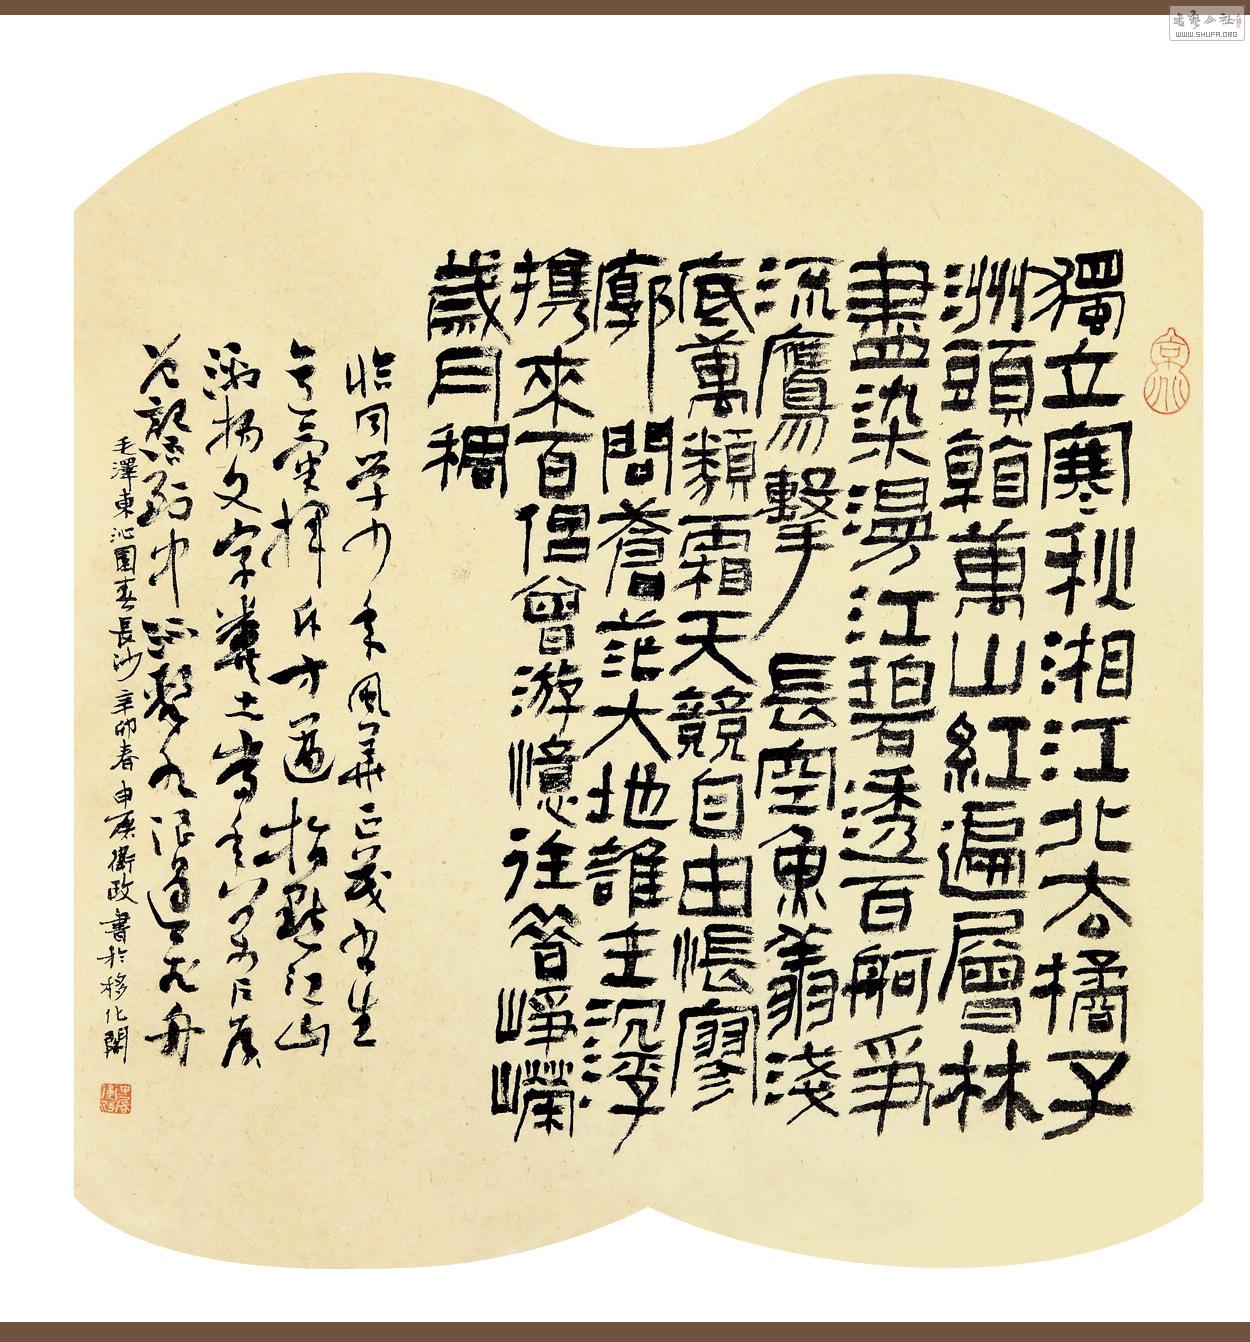 書藝公社
WWW.SHUFA.ORG
獨立寒秋湘江北去橘子
洲頭看萬山紅遍層林
盡染漫江碧透百舸爭
流鷹擊長空魚翔淺
底萬類霜天競自由悵寥
廓問蒼茫大地誰主沉浮
攜來百侶曾游憶往昔崢嶸
歲月稠
恰同學少年風華正茂書生
意氣揮斥方遒指點江山
激揚文字糞土當年萬户侯
曾記否到中流擊水浪遏飛舟
毛澤東沁園春長沙辛卯春申庚衛政書於移化閣